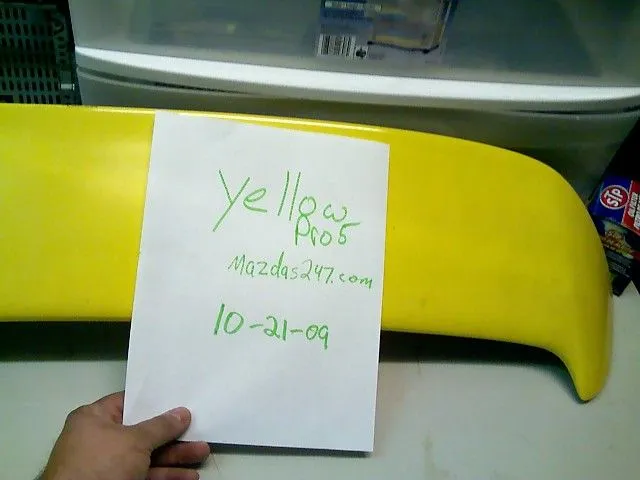 Yellow
Pro5
Mazdas247.com
10-21-09
STP